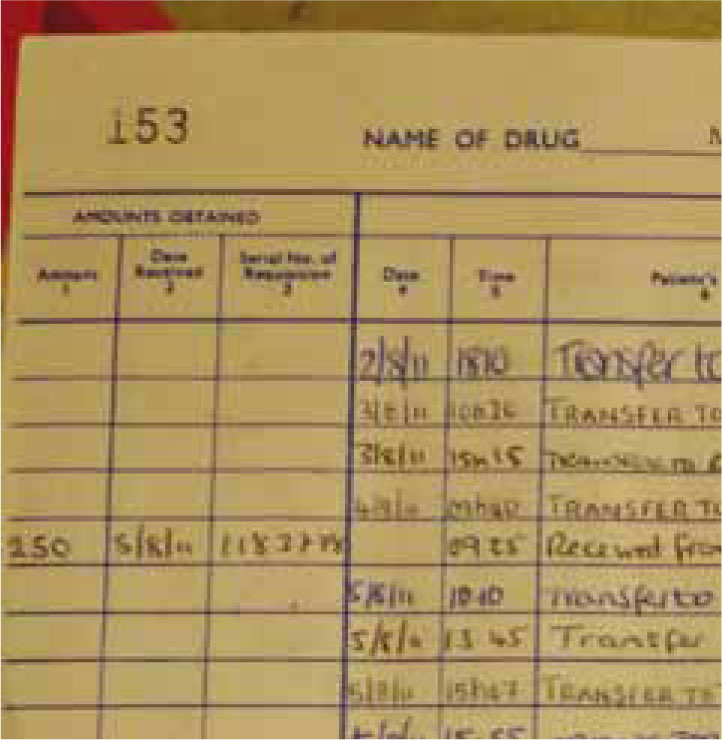 153
NAME OF DRUG
AMOUNTS OBTAINED
Amount 1 Date Received 2 Serial No. of Requisition 3 Date 4 Time 5 Patient's 6
2/8/11 1810 Transfer to
3/8/11 10h26 TRANSFER TO
3/8/11 15h15
4/8/11 TRANSFER TO
250 5/8/11 0925 Received from
5/8/11 1010 Transfer to
5/8/11 13 45 Transfer
5/8/11 15h47 TRANSFER TO
15 55